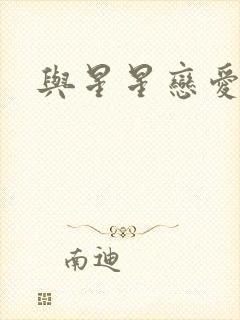 與星星戀愛
南迪